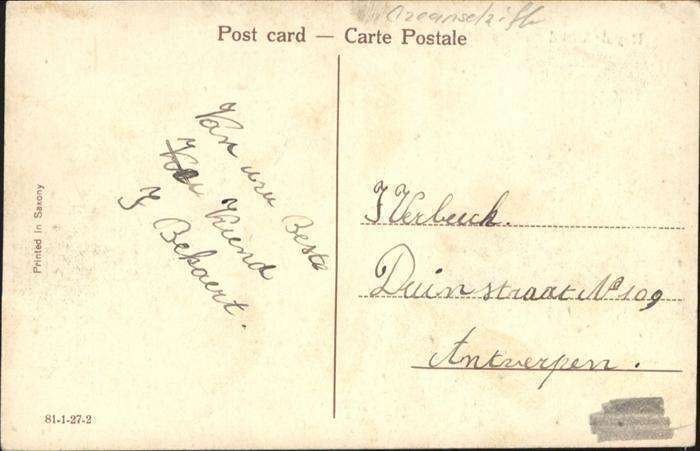 Oceanschiff
Post card — Carte Postale
Van uw Beste
Vriend
J Bekaert.
J Verbeeck.
Duinstraat No 109
Antwerpen.
Printed in Saxony
81-1-27-2